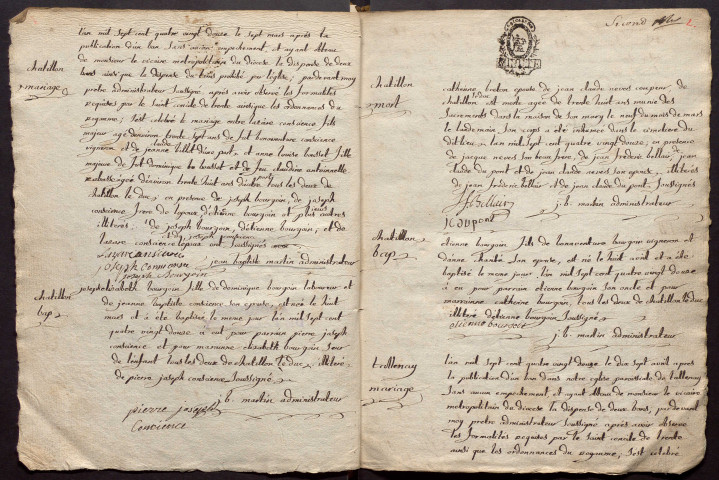 L'an mil sept cent quatre vingt douze le sept mars après la
publication d'un ban sans aucun empechement, et ayant obtenu
de monsieur le vicaire metropolitain du diocese la dispense de deux
bans ainsi que la dispense du tems prohibé par l'eglise; pardevant moy
chatillon
mariage
pretre administrateur soussigné après avoir observé les formalités
requises par le saint concile de trente ainsi que les ordonnances du
royaume; s'est celebré le mariage entre lazare conscience fils
majeur agé d'environ trente sept ans de fut bonaventure conscience
vigneron et de jeanne claude Billet d'une part, et anne louise bousset fille
majeure de fut dominique bousset et de feu claudine antoinette
agée d'environ trente huit ans d'autre part tous les deux de
chatillon le duc, en presence de joseph bourgoin, de joseph
conscience frere de l'epoux d'etienne bourgoin et plusieurs autres
illiteré de joseph bourgoin, d'etienne bourgoin, et de
lazare conscience l'epoux ont soussignés
joseph Conscience jean baptiste martin administrateur
joseph bourgoin
chatillon
bap
joseph elizabeth bourgoin fille de dominique bourgoin laboureur et
de jeanne baptiste conscience son epouse, est née le huit
mars et a été baptisé le meme jour l'an mil sept cent
quatre vingt douze a eut pour parrain pierre joseph
conscience et pour maraine elizabeth bourgoin soeur
de l'enfant tous les deux de chatillon le duc, illiteré
de pierre joseph conscience soussigné
j.b. martin administrateur
pierre joseph
Concience
Second 2
chatillon
mort
catherine breton epouse de jean claude neves coupeur de
chatillon le duc est morte agée de trente huit ans munie des
sacrements dans la maison de son mary le neuf du mois de mars
le lendemain son corps a été inhumée dans le cimetiere du
dit lieu, l'an mil sept cent quatre vingt douze, en presence
de jacque neves son beau frere, de jean frederic belluir, jean
claude du pont et de jean claude neves son epoux, illiterés
de jean frederic belluir et jean claude du pont, soussignés
j f Belluir j.b. martin administrateur
jc dupont
chatillon
bap
etienne bourgoin fils de bonnaventure bourgoin vigneron et
d'anne son epouse, est né le huit avril et a été
baptisé le meme jour, l'an mil sept cent quatre vingt douze
a eu pour parrain etienne bourgoin son oncle et pour
marrainne catherine bourgoin, tous les deux de chatillon le duc
illiteré d'etienne bourgoin soussigné
etienne bourgoin
j.b. martin administrateur
tallenay
mariage
L'an mil sept cent quatre vingt douze le dix sept avril après
la publication d'un ban dans notre eglise paroissiale de tallenay
sans aucun empechement, et ayant obtenu de monsieur le vicaire
metropolitain du diocese la dispense de deux bans, pardevant
moy pretre administrateur soussigné après avoir observé
les formalités requises par le saint concile de trente
ainsi que les ordonnances du royaume, s'est celebré